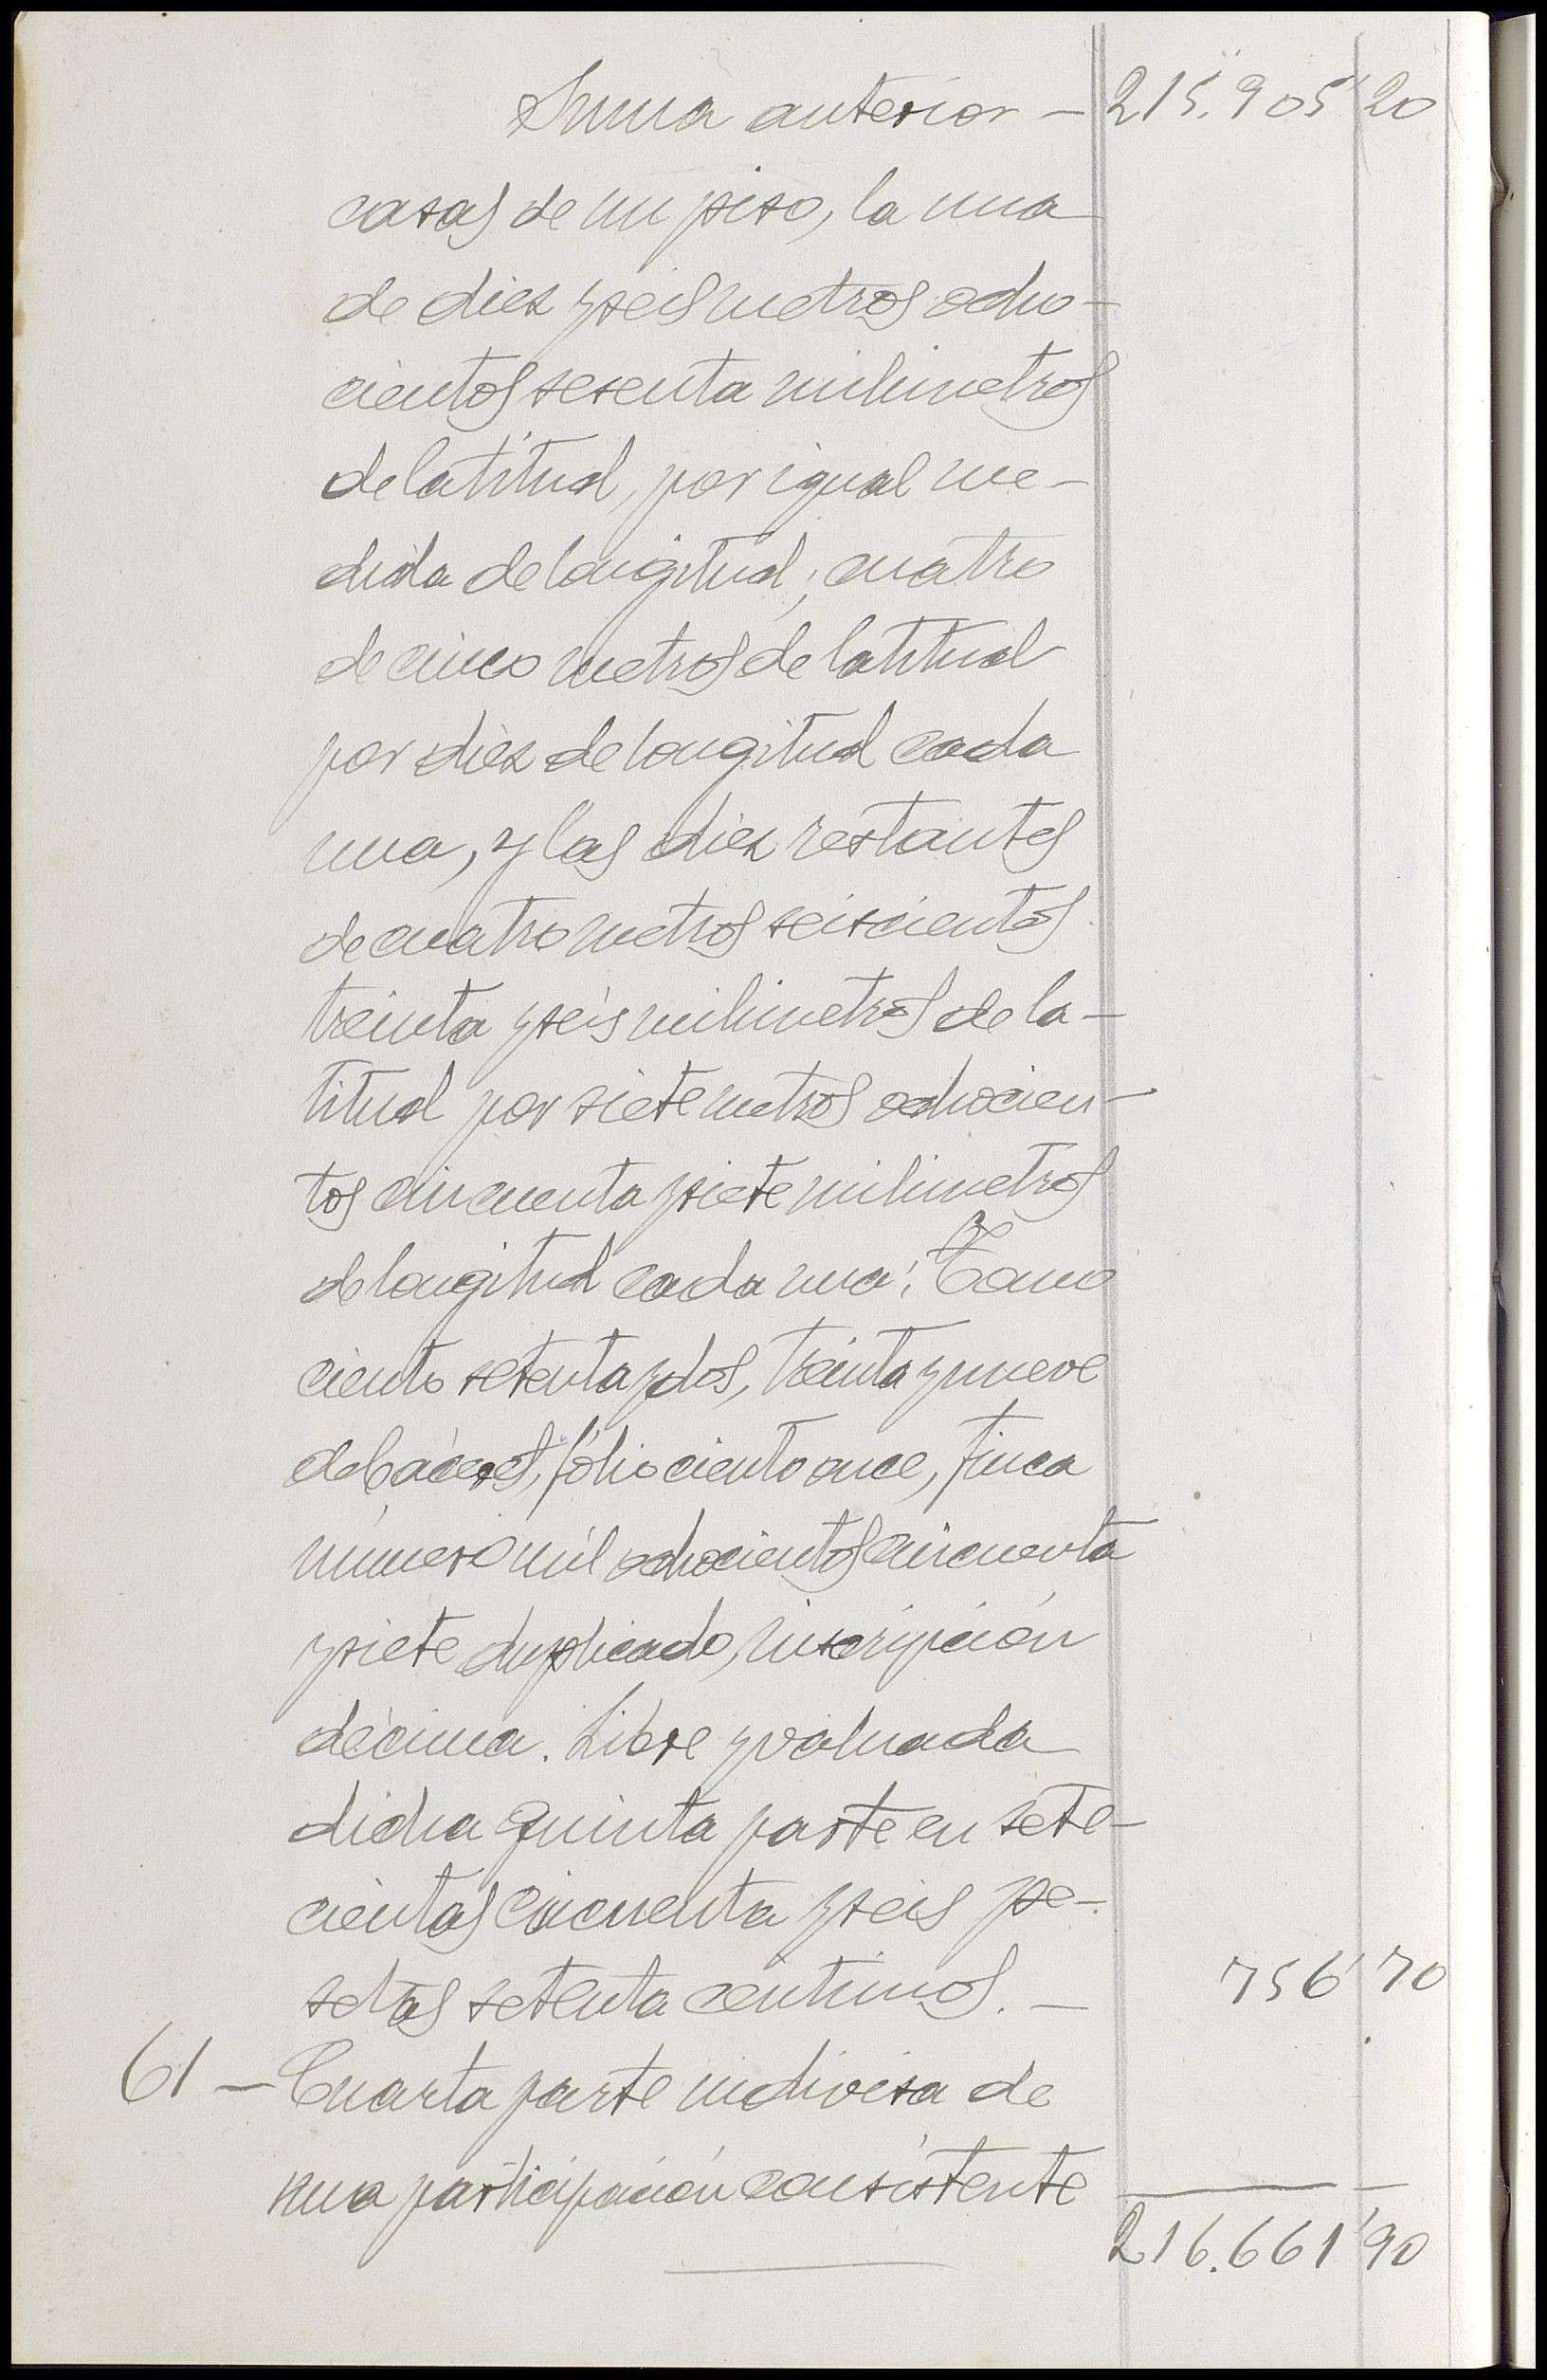 Suma anterior — 215.905'20
casas de un piso, la una
de diez y seis metros ocho-
cientos sesenta milimetros
de latitud, por igual me-
dida de longitud; cuatro
de cinco metros de latitud
por diez de longitud cada
una, y las diez restantes
de cuatro metros seiscientos
treinta y seis milimetros de la-
titud por siete metros ochocien-
tos cincuenta y siete milimetros
de longitud cada una; Tomo
ciento setenta y dos, treinta y nueve
de Cáceres, fólio ciento once, finca
número mil ochocientos cincuenta
y siete duplicado, inscripción
décima. Libre y valuada
dicha quinta parte en sete-
cientas cincuenta y seis pe-
setas setenta centimos. — 756'70
61 — Cuarta parte indivisa de
una participación consistente
216.661'90